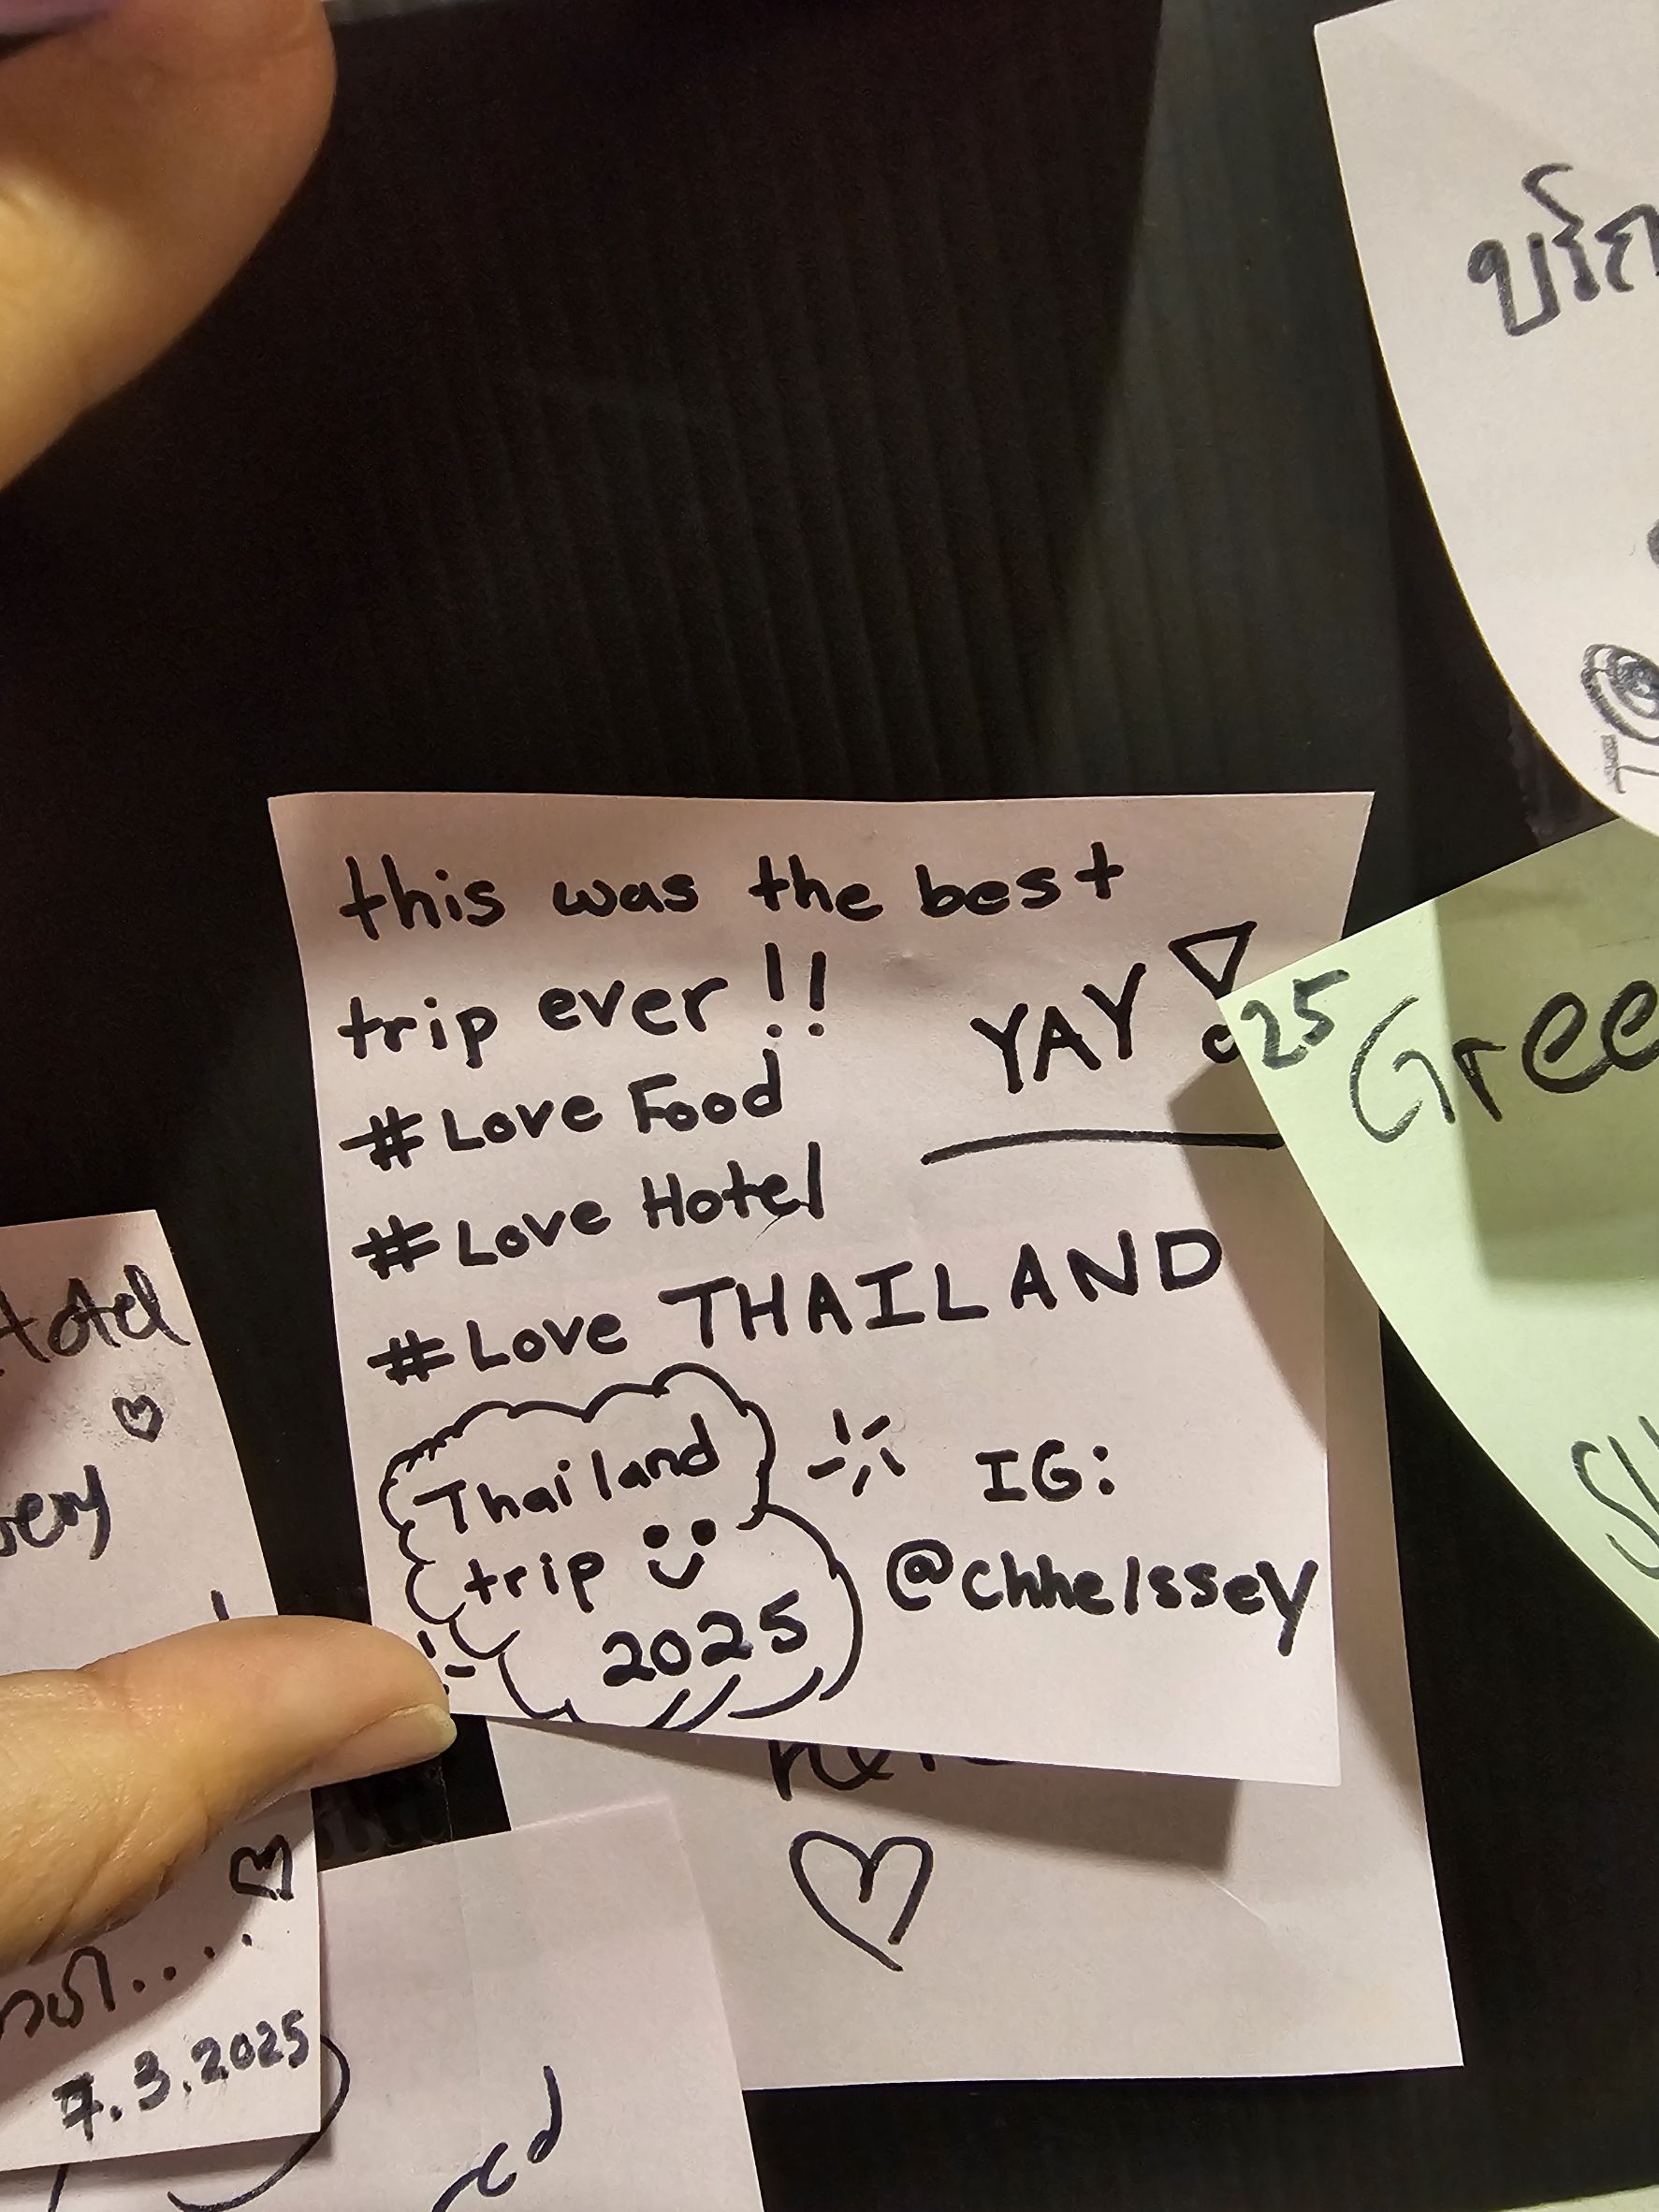 this was the best
trip ever!!
YAY!
#Love Food
#Love Hotel
#Love THAILAND
Thailand
trip
2025
IG:
@chhelssey
Hotel
7.3.2025
25